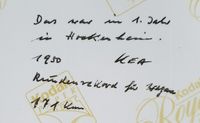 Das war im 1. Jahr
in Hockenheim.
1950 KEA
Rundenrekord für Wagen
171 Km